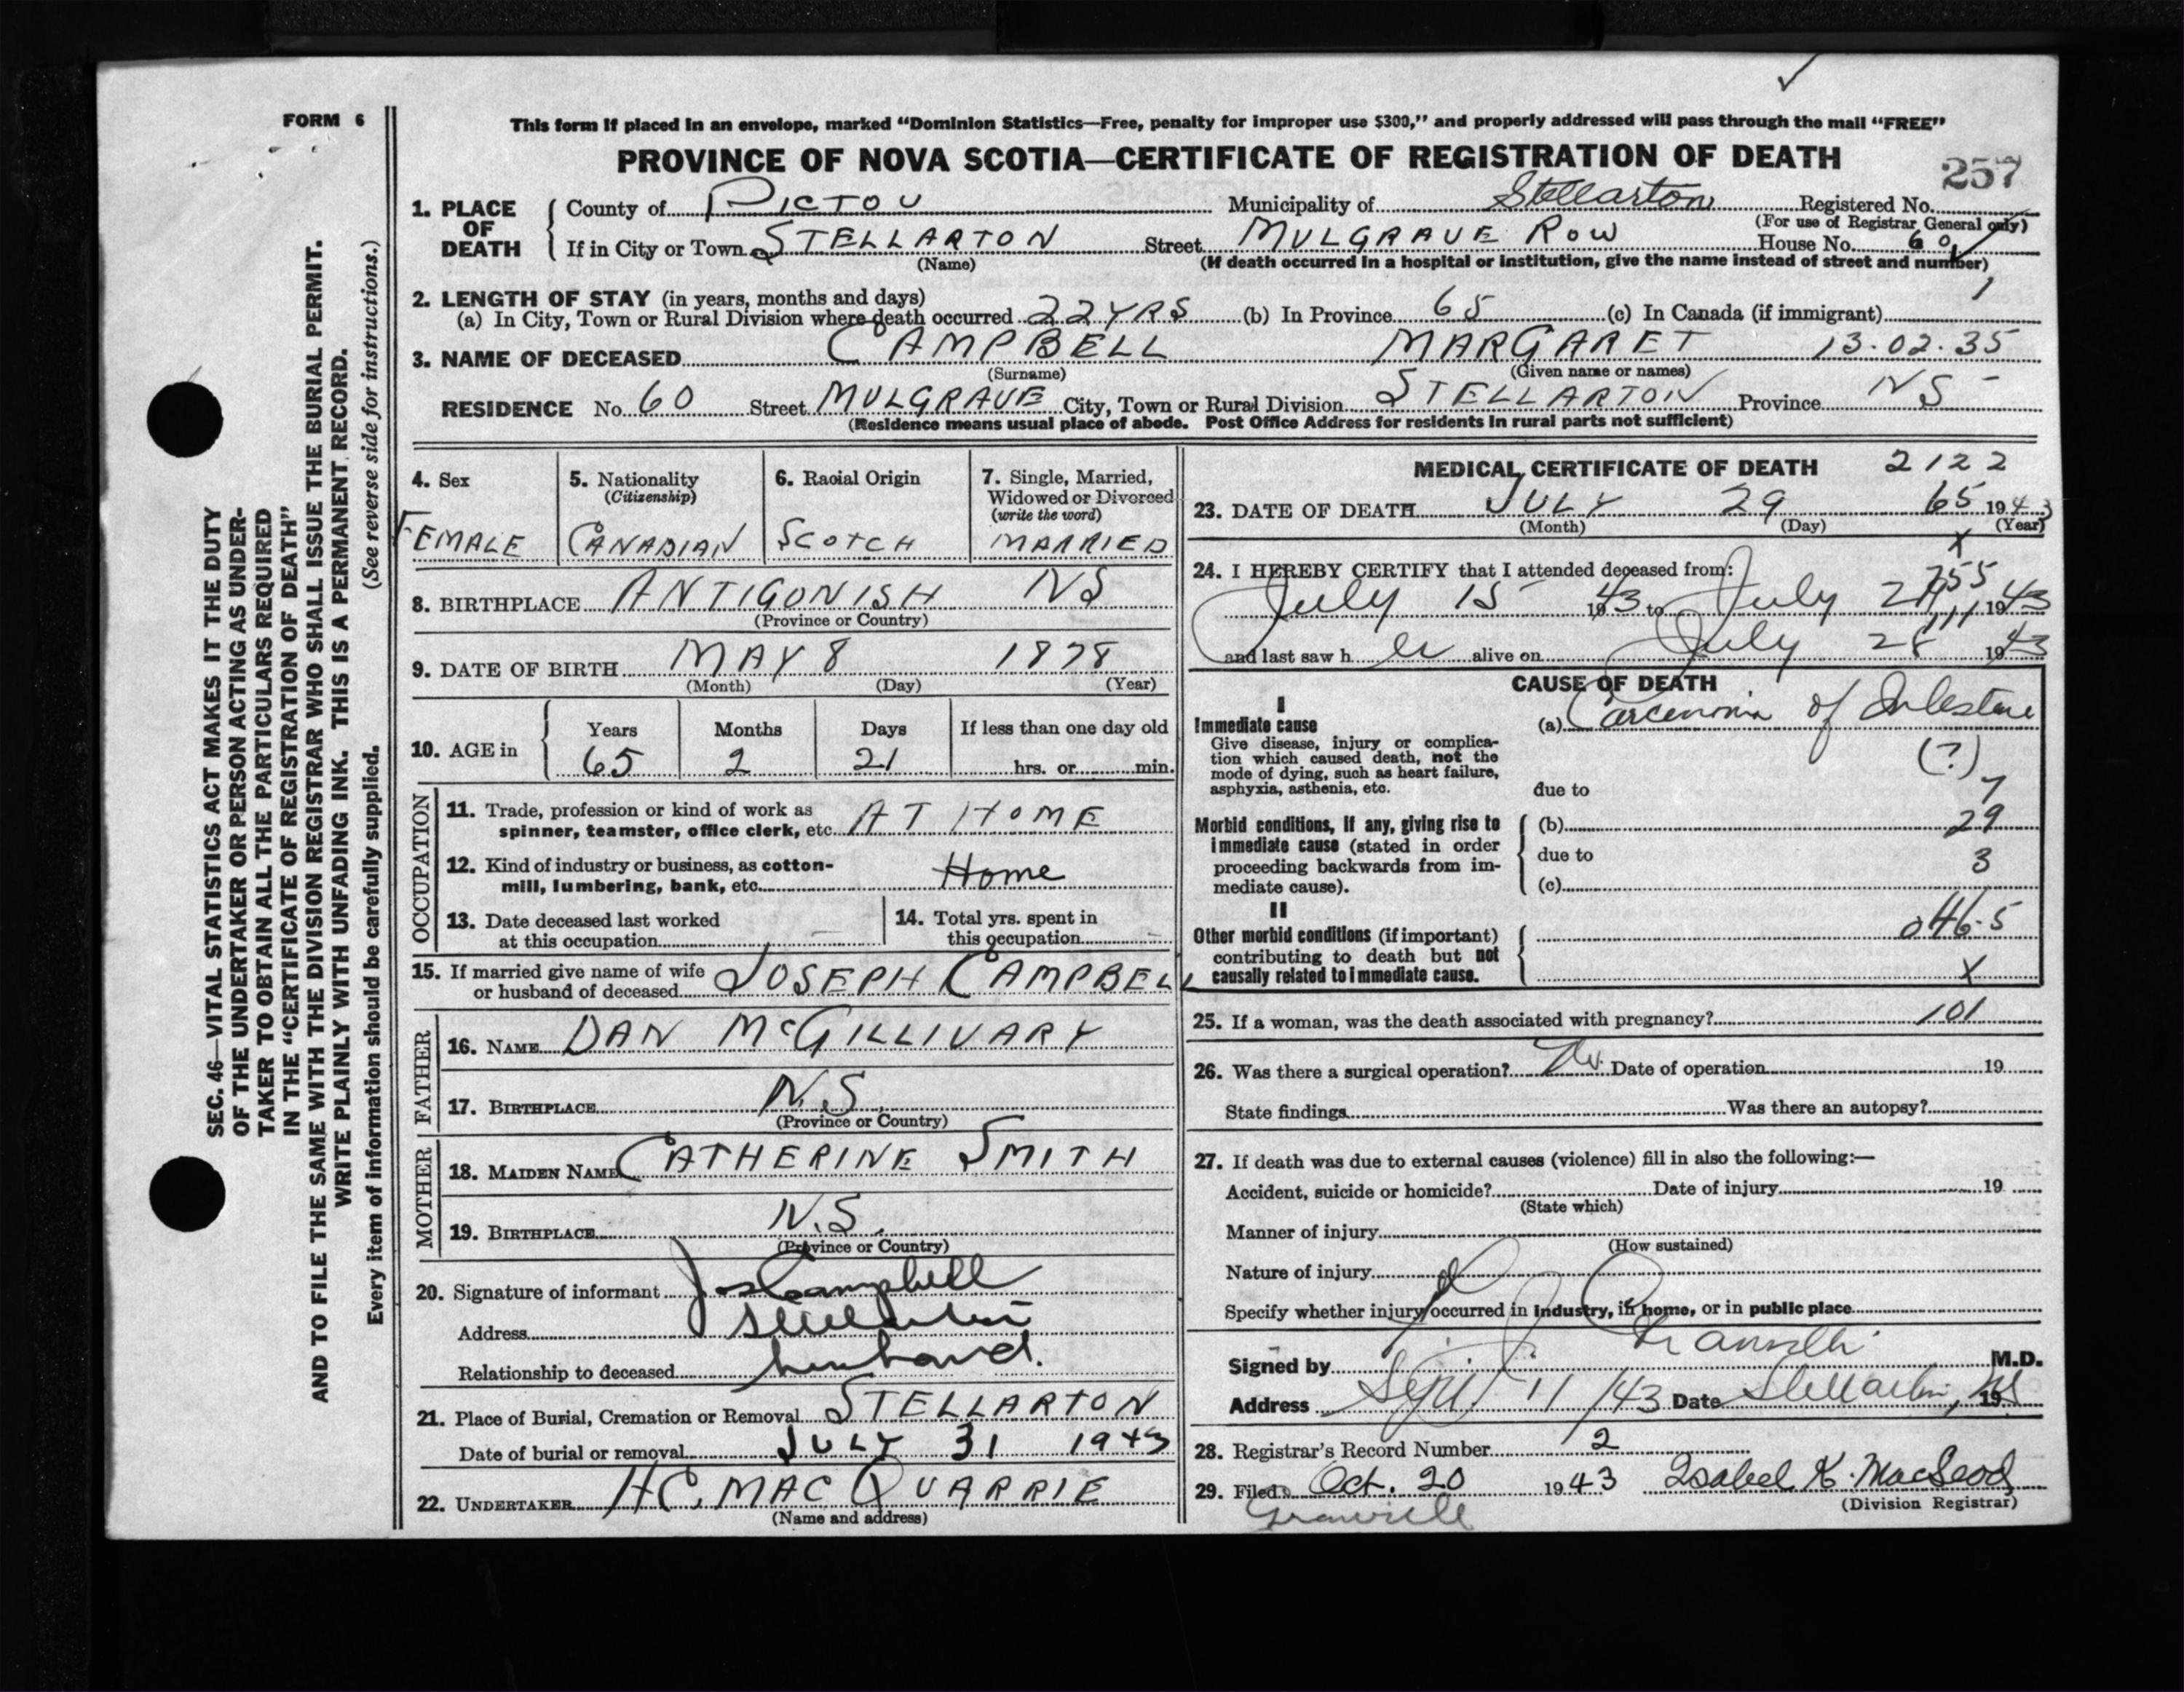 FORM 6
SEC. 46—VITAL STATISTICS ACT MAKES IT THE DUTY
OF THE UNDERTAKER OR PERSON ACTING AS UNDER-
TAKER TO OBTAIN ALL THE PARTICULARS REQUIRED
IN THE "CERTIFICATE OF REGISTRATION OF DEATH"
AND TO FILE THE SAME WITH THE DIVISION REGISTRAR WHO SHALL ISSUE THE BURIAL PERMIT.
WRITE PLAINLY WITH UNFADING INK. THIS IS A PERMANENT RECORD.
Every item of information should be carefully supplied. (See reverse side for instructions.)
This form if placed in an envelope, marked "Dominion Statistics—Free, penalty for improper use $300," and properly addressed will pass through the mail "FREE"
PROVINCE OF NOVA SCOTIA—CERTIFICATE OF REGISTRATION OF DEATH
257
1. PLACE OF DEATH County of PICTOU Municipality of Stellarton Registered No.
(For use of Registrar General only)
If in City or Town STELLARTON Street MULGRAVE ROW House No. 60
(Name) (If death occurred in a hospital or institution, give the name instead of street and number)
2. LENGTH OF STAY (in years, months and days) 1
(a) In City, Town or Rural Division where death occurred 22 YRS (b) In Province 65 (c) In Canada (if immigrant)
3. NAME OF DECEASED CAMPBELL MARGARET 13.02.35
(Surname) (Given name or names)
RESIDENCE No. 60 Street MULGRAVE City, Town or Rural Division STELLARTON Province NS
(Residence means usual place of abode. Post Office Address for residents in rural parts not sufficient)
4. Sex 5. Nationality (Citizenship) 6. Racial Origin 7. Single, Married, Widowed or Divorced (write the word)
FEMALE CANADIAN SCOTCH MARRIED
8. BIRTHPLACE ANTIGONISH NS
(Province or Country)
9. DATE OF BIRTH MAY 8 1878
(Month) (Day) (Year)
10. AGE in Years Months Days If less than one day old
65 2 21 hrs. or min.
OCCUPATION
11. Trade, profession or kind of work as
spinner, teamster, office clerk, etc. AT HOME
12. Kind of industry or business, as cotton-
mill, lumbering, bank, etc. Home
13. Date deceased last worked
at this occupation
14. Total yrs. spent in
this occupation
15. If married give name of wife
or husband of deceased JOSEPH CAMPBELL
FATHER
16. NAME DAN McGILLIVARY
17. BIRTHPLACE N.S.
(Province or Country)
MOTHER
18. MAIDEN NAME CATHERINE SMITH
19. BIRTHPLACE N.S.
(Province or Country)
20. Signature of informant Jos Campbell
Address Stellarton
Relationship to deceased husband.
21. Place of Burial, Cremation or Removal STELLARTON
Date of burial or removal JULY 31 1943
22. UNDERTAKER H.C. MAC QUARRIE
(Name and address)
MEDICAL CERTIFICATE OF DEATH 2122
23. DATE OF DEATH JULY 29 65 1943
(Month) (Day) (Year)
X
24. I HEREBY CERTIFY that I attended deceased from:
July 15 1943 to July 1943
and last saw her alive on July 28 1943
CAUSE OF DEATH
I
Immediate cause
Give disease, injury or complica-
tion which caused death, not the
mode of dying, such as heart failure,
asphyxia, asthenia, etc.
(a) Carcenoma of Intestine
(?)
due to 7
Morbid conditions, if any, giving rise to
immediate cause (stated in order
proceeding backwards from im-
mediate cause).
(b) 29
due to 3
(c)
II
Other morbid conditions (if important)
contributing to death but not
causally related to immediate cause.
046.5
X
25. If a woman, was the death associated with pregnancy? 101
26. Was there a surgical operation? No. Date of operation 19
State findings Was there an autopsy?
27. If death was due to external causes (violence) fill in also the following:—
Accident, suicide or homicide? Date of injury 19
(State which)
Manner of injury
(How sustained)
Nature of injury
Specify whether injury occurred in industry, in home, or in public place
Signed by Granville M.D.
Address Sept 11/43 Date Stellarton, NS 19
28. Registrar's Record Number 2
29. Filed Oct. 20 1943 Isabel K. MacLeod
(Division Registrar)
Granville